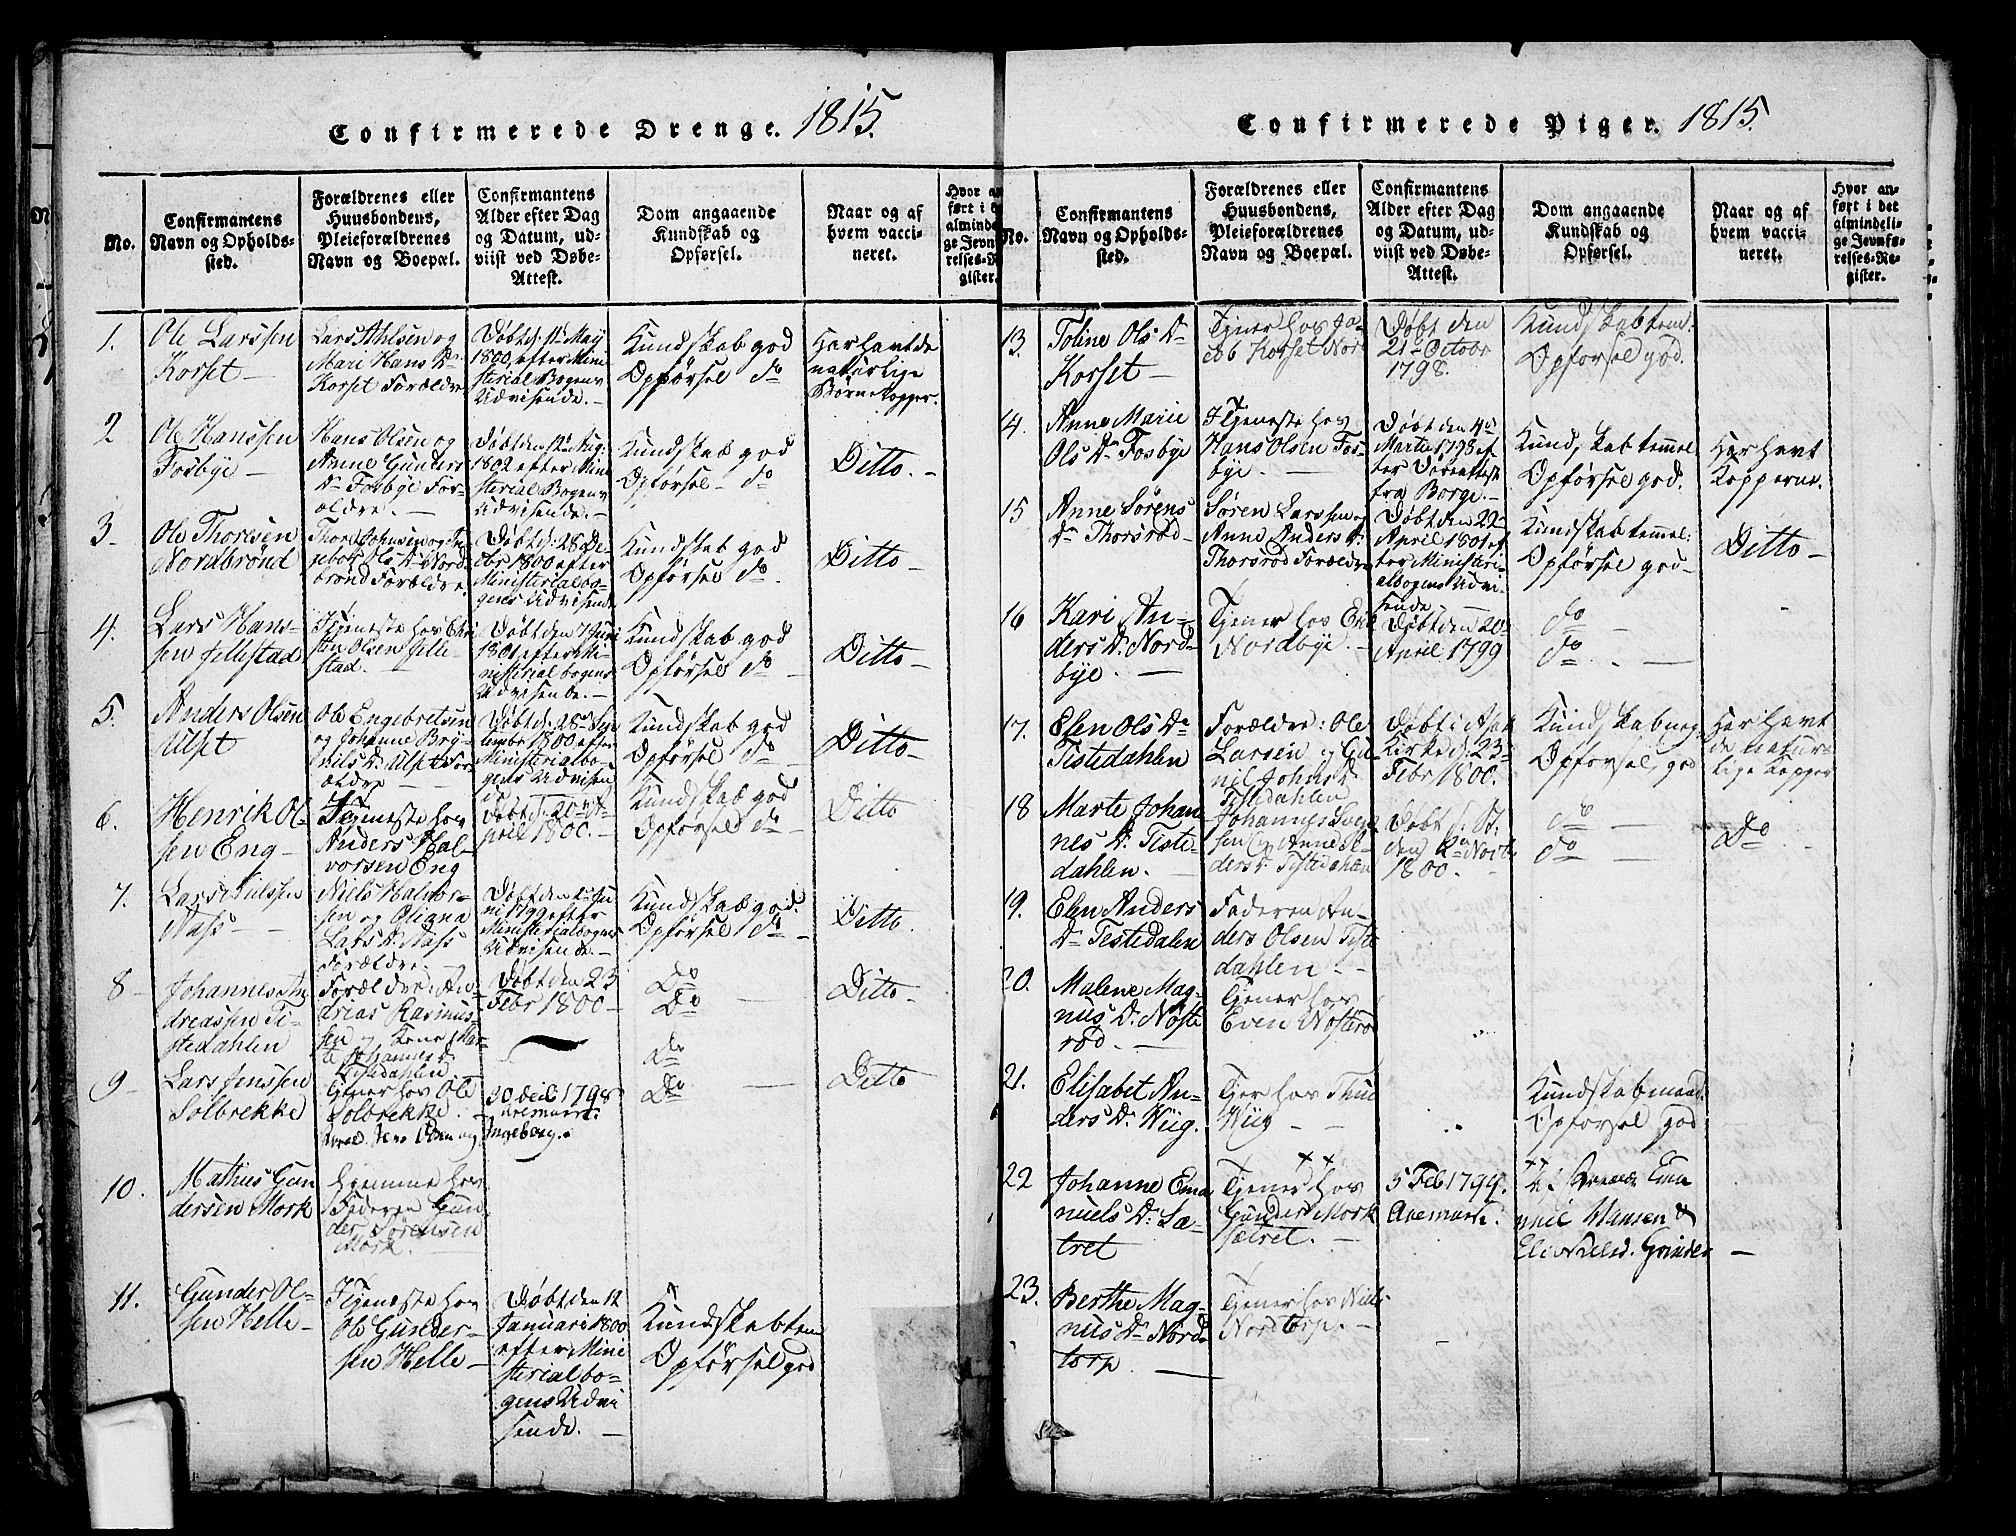 Confirmerede Drenge. 1815.
No.
Confirmantens
Navn og Opholds-
sted.
Forældrenes eller
Huusbondens,
Pleieforældrenes
Navn og Boepæl.
Confirmantens
Alder efter Dag
og Datum, ud-
viist ved Døbe-
Attest.
Dom angaaende
Kundskab og
Opførsel.
Naar og af
hvem vacci-
neret.
Hvor an
ført i d
alminde
ge Jevn
relses-R
gister.
1.
Ole Larssen
Korset -
Lars Ahlsen og
Mari Hans Dr
Korset Forældre
Døbt d: 11te May
1800, efter Mini
sterial Bogens
Udvisende. -
Kundskab god
Opførsel do
Har havt de
naturlige
Børnekopper.
2
Ole Hanssen
Fosbye -
Hans Olsen og
Anne Gunders
Dr Fosbye For-
ældre. -
Døbt den 12te Aug:
1802 efter Mini
sterial Bogens
Udvisende. -
Kundskab god
Opførsel - do
Ditto. -
3-
Ole Thoresen
Nordbrønd
Thore Johnsen og In
geborg Ols Dr Nord
brønd Forældre.
Døbt d: 28 De-
cbr 1800 efter
Ministerialbo-
gens Udvisend
Kundskab god
Opførsel do.
Ditto -
4.
Lars Hans-
sen Jellestad
I Tjeneste hos Chri
sten Olsen Jelle-
stad. -
Døbt den 7 Juni
1801 efter Mi-
nisterialbogens
Udvisende. -
Kundskab god
Opførsel do -
Ditto -
5.
Anders Olsen
Ulset
Ole Engebretsen
og Johanne Bry-
nils Dr Ulset For-
ældre -
Døbt d: 28de Sep
tembr 1800 efter
Ministerialbo-
gens Udvisen
de
Kundskab god
Opførsel do -
Ditto -
6.
Henrik Ol-
sen Eng -
I Tjeneste hos
Anders Hal-
vorsen Eng
Døbt d: 20de A-
pril 1800. -
Kundskab god
Opførsel do -
Ditto
7.
Lars Nielssen
Nass -
Niels Halvor-
sen og Oliana
Lars Dr Nass
Forældre. -
Døbt den 1ste Ju
ni 1799 efter
Ministerialbogens
Udvisende. -
Kundskab god.
Opførsel do -
Ditto.
8-
Johannes An
dreassen Ti-
stedahlen
Forældre: An-
dreas Rasmus-
sen og Kone Mar-
te Johannes d.
Tistedahlen
Døbt den 23
Febr 1800 -
Do
Do -
Ditto -
9-
Lars Jenssen
Solbrekke
Tjener hos Ole
Solbrekke.
Foræld. Jens Olsen og Ingeborg.
30 Decb 1798
Aremark.
do
Do -
Ditto
10.
Mathius Gun
dersen Mørk
hjemme hos
Faderen Gun-
der Sørensen
Mørk.
11.
Gunder Ol-
sen Helle -
I Tjeneste hos
Ole Gunder-
sen Helle -
Døbt den 12
Januari 1800
efter Mini
sterialbo-
gens Udvi
sende. -
Kundskab tem
Opførsel god
Confirmerede Piger. 1815.
No.
Confirmantens
Navn og Opholds-
sted.
Forældrenes eller
Huusbondens,
Pleieforældrenes
Navn og Boepæl.
Confirmantens
Alder efter Dag
og Datum, ud-
viist ved Døbe-
Attest.
Dom angaaende
Kundskab og
Opførsel.
Naar og af
hvem vacci-
neret.
Hvor an-
ført i det
almindeli-
ge Jevnfø-
relses-Re-
gister.
13.
Toline Ols Dr
Korset -
Tjener hos Ja-
cob Korset Nor
Døbt den
21de Octobr
1798.
Kundskab tem:
Opførsel god.
14.
Anne Marie
Ols Dr Fosbye
I Tjeneste hos
Hans Olsen Fos-
bye. -
Døbt den 4de
Martii 1798 ef
ter Døbeattest
fra Borge. -
Kundskab temmel
Opførsel god.
Har havt
Kopperne.
15
Anne Sørens
Dr Thorsrød -
Søren Larssen og
Anne Anders Dr
Thorsrød Forældre
Døbt den 22de
April 1801 ef
ter Ministeri-
albogens Udvi-
sende. -
Kundskab temmel:
Opførsel god -
Ditto -
16
Kari An-
ders Dr Nord-
bye. -
Tjener hos Erik
Nordbye. -
Døbt den 20de
April 1799
do -
do -
17.
Elen Ols Dr
Tistedahlen
Forældre: Ole
Larsen og Gu-
nil Johns Dr
Tistedahlen
Døbt i Asak
Kirke d: 23de
Febr 1800.
Kundskab nog.
Opførsel god
Har havt
de natur-
lige Kopper
18
Marte Johan
nes Dr Tiste-
dahlen. -
Johannes Svend
sen og Anne An-
ders Dr Tistedahlen
Døbt s. St.
den 2den Novbr
1800.
do -
do -
Do
19.
Elen Anders
Dr Tistedalen
Faderen An-
ders Olsen Tiste
dahlen. -
20.
Malene Mag-
nus Dr Nøste
rød. -
Tjener hos
Even Nøsterød
21.
Elisabet An-
ders Dr Wiig.
Tjer hos Thue
Wiig -
Kundskab maad.
Opførsel god
22
Johanne Ema
nuels Dr Sæ-
tret
Tjener hos
Gunder Mørk
sætret. -
5 Feb 1799.
Aremark.
Emanuel Hansen &
Eli Nielsd. Grinder -
23.
Berthe Mag-
nus Dr Nord-
torp. -
Tjener hos Niels
Nordtorp. -